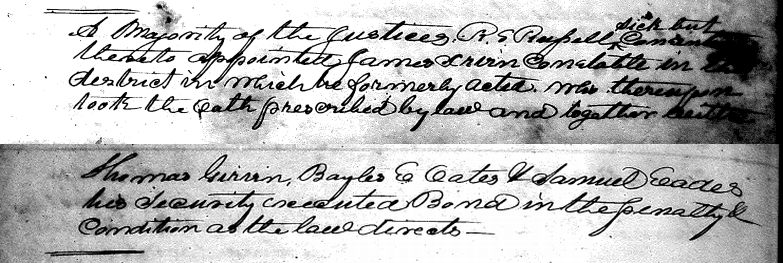 sick but
A Majority of the Justices. R. E Russell Consenting
thereto appointed James Irvin Constable in the
district in which he formerly acted. who thereupon
took the Oath prescribed by law and together with
Thomas Girvin, Bayles E Cates & Samuel Eades
his Security executed Bond in the penalty &
Condition as the law directs—